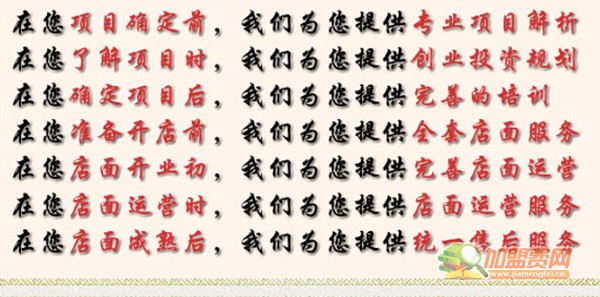 在您项目确定前，我们为您提供专业项目解析
在您了解项目时，我们为您提供创业投资规划
在您确定项目后，我们为您提供完善的培训
在您准备开店前，我们为您提供全套店面服务
在您店面开业初，我们为您提供完善店面运营
在您店面运营时，我们为您提供店面运营服务
在您店面成熟后，我们为您提供统一售后服务
加盟费网
www.jiamengfei.cn